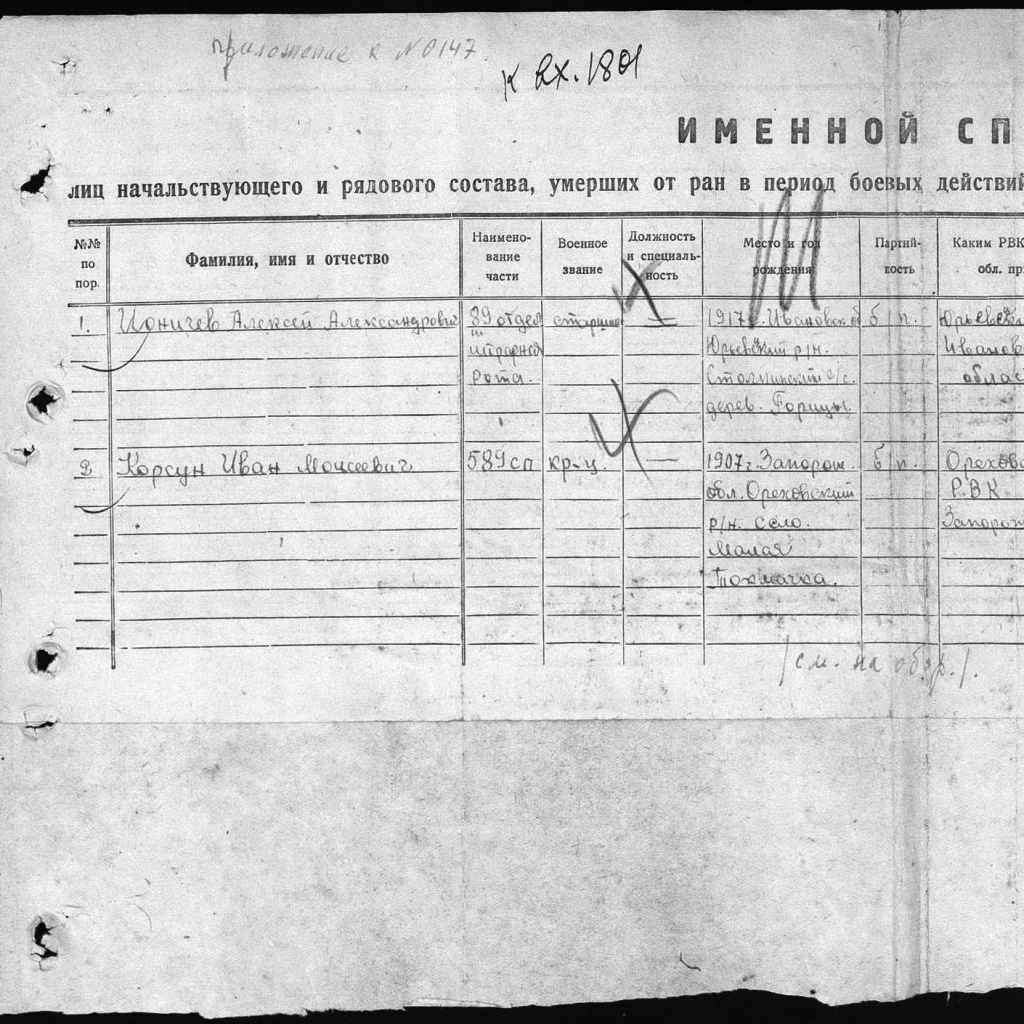 приложение к №0147.
к вх. 1801
ИМЕННОЙ СП
лиц начальствующего и рядового состава, умерших от ран в период боевых действий
№№ по пор.
Фамилия, имя и отчество
Наимено-
вание
части
Военное
звание
Должность
и специаль-
ность
Место и год
рождения
Партий-
ность
Каким РВК
обл. при
1. Ионичев Алексей Александрович 89 отдел старшина — 1917 г. Ивановск. о б/п. Юрьевс
штрафная Юрьевский р/н. Иванов
рота. с/с. облас
дерев. Горицы.
2 Корсун Иван Моисеевич 589 сп кр-ц. — 1907 г. Запорож. б/п. Орехово
обл. Ореховский РВК
р/н. село. Запорож
Малая
Токмачка.
/см. на обор./.